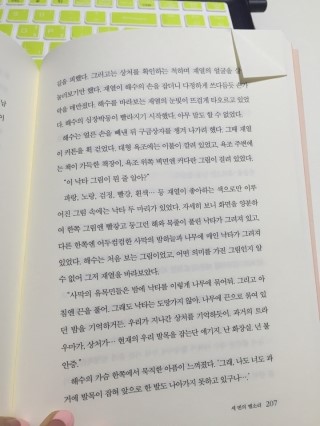 길을 피했다. 그러고는 상처를 확인하는 척하며 재열의 얼굴을
눌러보기만 했다. 재열이 해수의 손을 잡더니 다정하게 쓰다듬듯
락을 매만졌다. 해수를 바라보는 재열의 눈빛이 뜨겁게 타오르고 있었
다. 해수의 심장박동이 빨라지기 시작했다. 아무 말도 할 수 없었다.
해수는 얼른 손을 빼낸 뒤 구급상자를 챙겨 나가려 했다. 그때 재열
이 커튼을 확 걷었다. 대형 욕조에는 이불이 깔려 있었고, 욕조 주변에
는 책이 가득한 책장이, 욕조 위쪽 벽면엔 커다란 그림이 걸려 있었다.
“이 낙타 그림이 뭔 줄 알아?”
파랑, 노랑, 검정, 빨강, 흰색… 등 재열이 좋아하는 색으로만 이루
어진 그림 속에는 낙타 두 마리가 있었다. 자세히 보니 화면을 양분하
여 한쪽 그림엔 빨갛고 둥그런 해와 목줄이 풀린 낙타가 그려져 있고,
다른 한쪽엔 어두컴컴한 사막의 밤하늘과 나무에 매인 낙타가 그려지
있었다. 해수는 처음 보는 그림이었고, 어떤 의미를 가진 그림인지 알
수 없어 그저 재열을 바라보았다.
“사막의 유목민들은 밤에 낙타를 이렇게 나무에 묶어둬. 그리고 아
침엔 끈을 풀어. 그래도 낙타는 도망가지 않아. 나무에 끈으로 묶여 있
던 밤을 기억하거든. 우리가 지나간 상처를 기억하듯이. 과거의 트라
우마가, 상처가… 현재의 우리 발목을 잡는단 얘기지. 난 화장실, 넌 불
안증.”
해수의 가슴 한쪽에서 묵직한 아픔이 느껴졌다. ‘그래, 나도 너도 과
거에 발목이 잡혀 앞으로 한 발도 나아가지 못하고 있구나…’
세 번의 벨소리 207